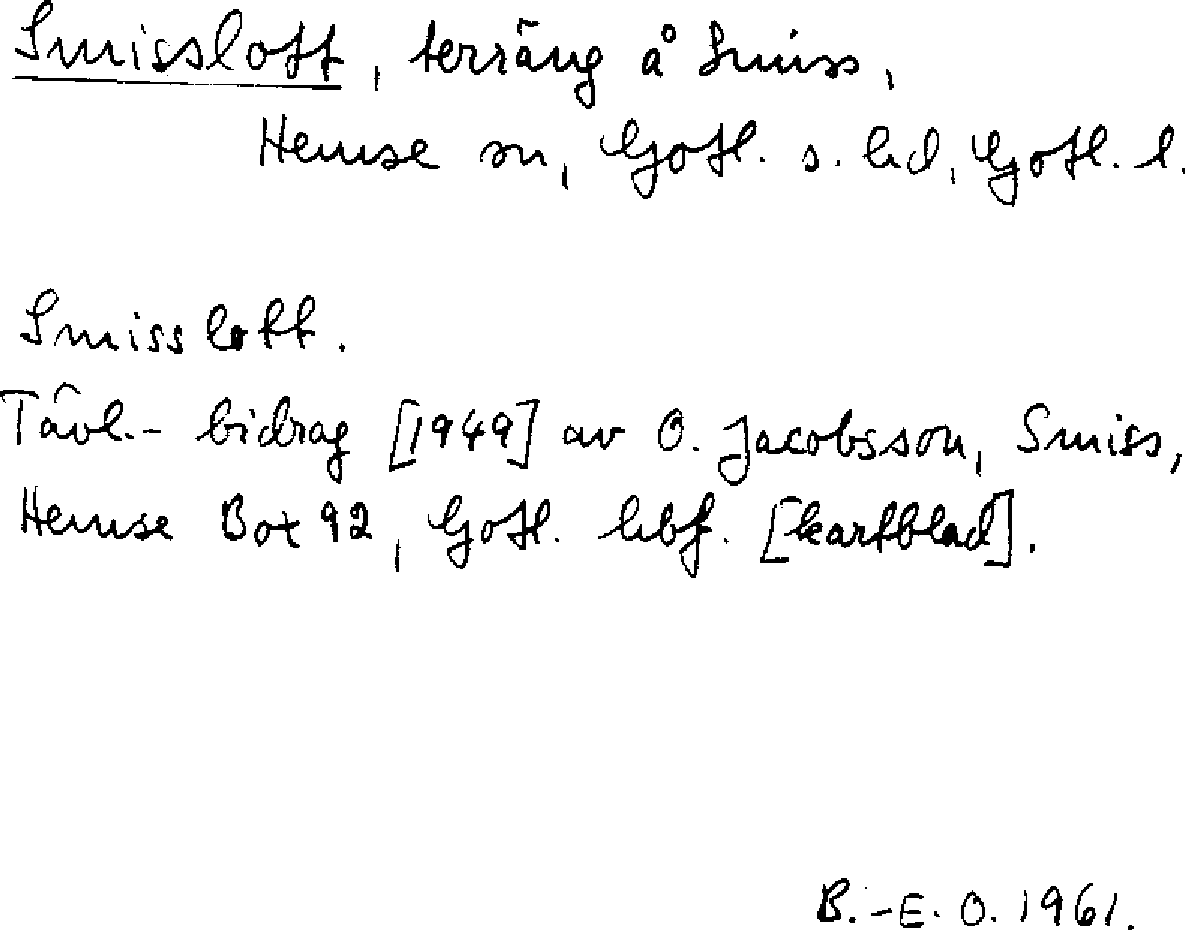 Smisslott, terräng å Smiss,
Hemse sn, Gotl. s. hd, Gotl. l.
Smisslott.
Tävl.- bidrag [1949] av O. Jacobsson, Smiss,
Hemse Box 92, Gotl. hbf. [kartblad].
B.-E. O. 1961.